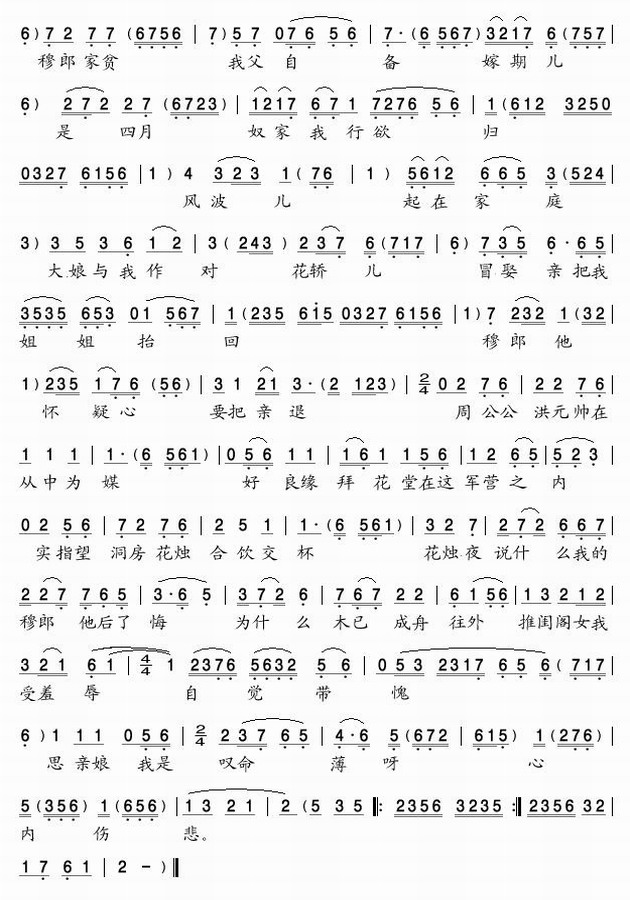 6)72 77(6756|7)57 076 56|7·(6 567)3217 6(757|
穆郎家贫 我父自 备 嫁期儿
6) 272 27(6723)|1217 671 7276 56|1(612 3250
是 四月 奴家我行欲 归
0327 6156|1)4 323 1(76|1) 5612 665 3(524|
风波儿 起在家 庭
3)35 36 12|3(243)237 6(717|6)735 6·65|
大娘与我作 对 花轿儿 冒娶 亲把我
3535 653 01 567|1(235 615 0327 6156|1)7 232 1(32|
姐 姐 抬 回 穆郎他
1)235 176 (56)|31 21 3·(2 123)|2/4 02 76|22 76|
怀 疑心 要把亲退 周公公 洪元帅在
1 1 1|1·(6 561)|056 11|161 156|12 65|523|
从中为 媒 好 良缘 拜 花 堂在这 军营之 内
02 56|72 76|25 1|1·(6 561)|32 7|272 667|
实指望 洞房花烛 合饮交 杯 花烛夜 说什 么我的
227 765|3·6 5|372 6|767 22|61 56|13 212|
穆郎 他后了 悔 为什 么 木已 成舟 往外 推闺阁女我
321 61|4/4 1 2376 5632 56|053 2317 65 6(717|
受羞 辱 自 觉 带 愧
6)1 11 056|2/4 237 65|4·6 5(672|615) 1(276)|
思亲娘 我是 叹命 薄 呀 心
5(356) 1(656)|13 21|2(5 35‖: 2356 3235 :‖2356 32|
内 伤 悲。
17 61|2 -)‖